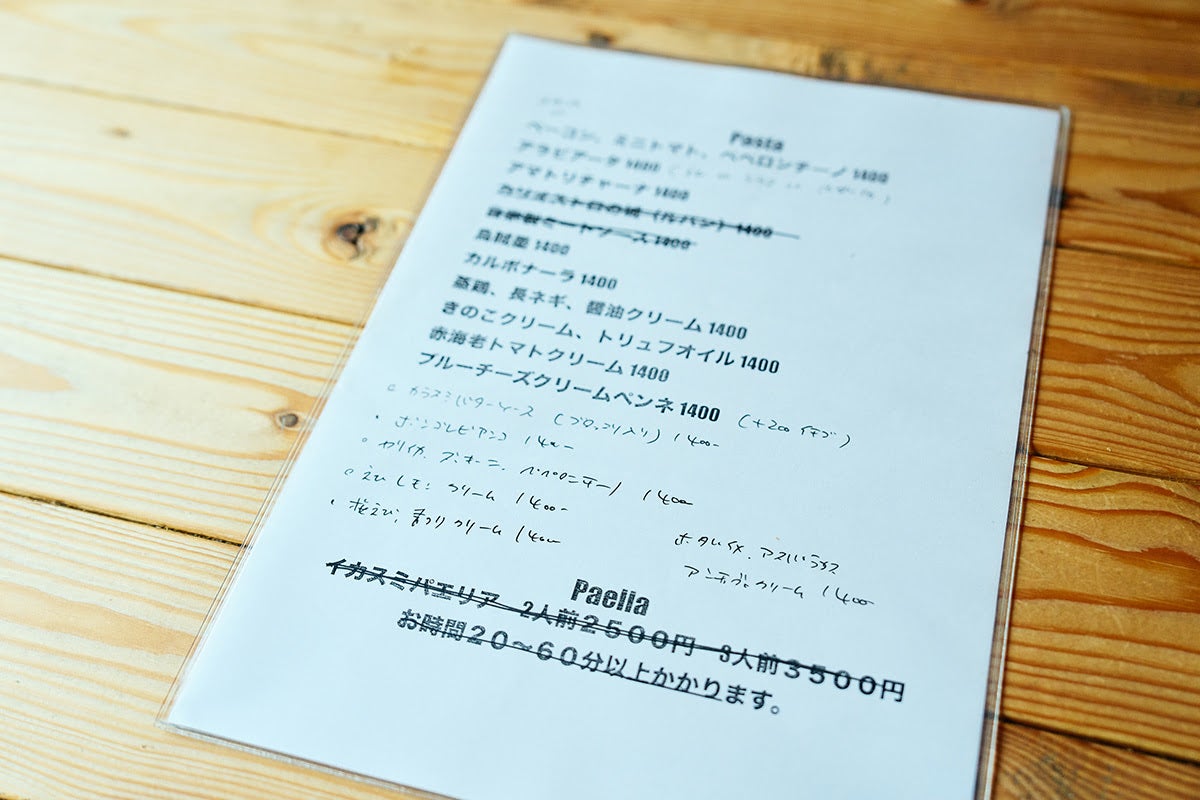 Pasta
ベーコン、ミニトマト、ペペロンチーノ 1400
アラビアータ 1400
アマトリチャーナ 1400
カリオストロの城（ルパン）1400
自家製ミートソース 1400
烏賊墨 1400
カルボナーラ 1400
蒸鶏、長ネギ、醤油クリーム 1400
きのこクリーム、トリュフオイル 1400
赤海老トマトクリーム 1400
ブルーチーズクリームペンネ 1400 (+200
カラスミバターソース (ブロッコリ入り) 1400-
ボンゴレビアンコ 1400-
ヤリイカ、ズッキーニ、ペペロンチーノ 1400
えびしそ クリーム 1400-
桜えび、クリーム 1400
ホタルイカ、アスパラガス
アンチョビクリーム 1400
Paella
イカスミパエリア 2人前２５００円 3人前３５００円
お時間２０〜６０分以上かかります。